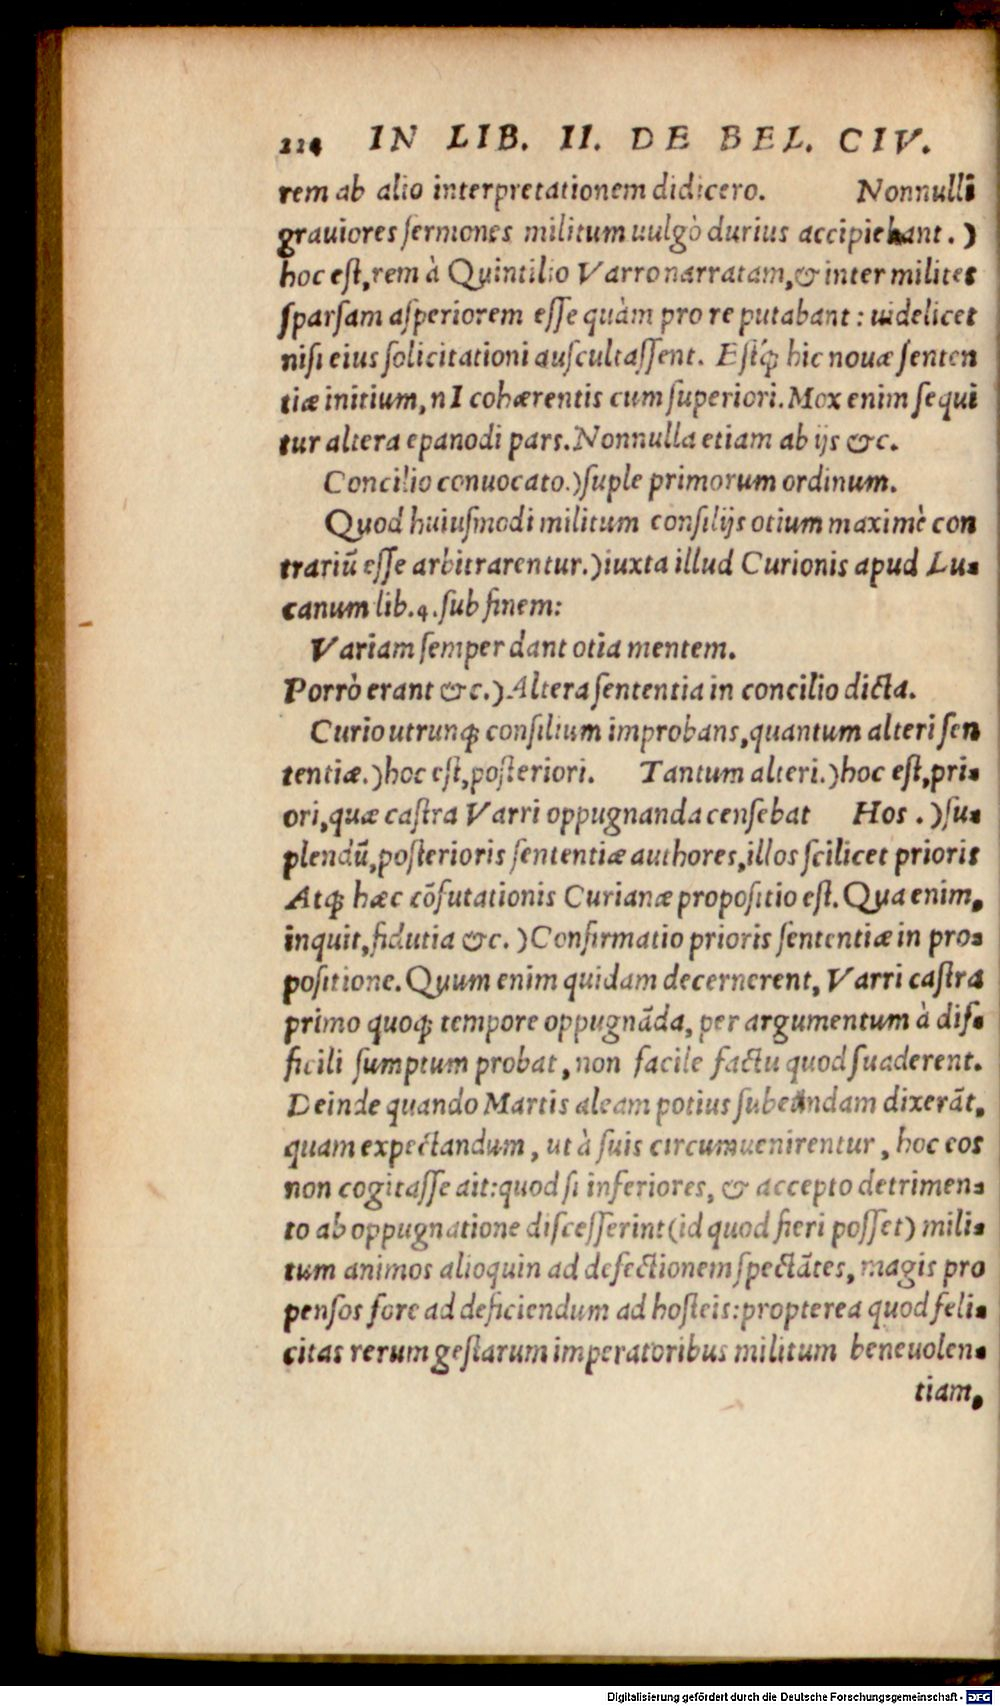 224 IN LIB. II. DE BEL. CIV.
rem ab alio interpretationem didicero. Nonnulli
grauiores sermones militum uulgò durius accipiebant.)
hoc est, rem à Quintilio Varro narratam, & inter milites
sparsam asperiorem esse quàm pro re putabant: uidelicet
nisi eius solicitationi auscultassent. Estq́; hic nouæ senten
tiæ initium, nI cohærentis cum superiori. Mox enim sequi
tur altera epanodi pars. Nonnulla etiam ab ijs &c.
Concilio conuocato.) suple primorum ordinum.
Quod huiusmodi militum consilijs otium maximè con
trariũ esse arbitrarentur.) iuxta illud Curionis apud Lu-
canum lib. 4. sub finem:
Variam semper dant otia mentem.
Porrò erant &c.) Altera sententia in concilio dicta.
Curio utrunq; consilium improbans, quantum alteri sen
tentiæ.) hoc est, posteriori. Tantum alteri.) hoc est, pri-
ori, quæ castra Varri oppugnanda censebat Hos .) su-
plendũ, posterioris sententiæ authores, illos scilicet prioris
Atq; hæc cõfutationis Curianæ propositio est. Qua enim,
inquit, fidutia &c. ) Confirmatio prioris sententiæ in pro-
positione. Quum enim quidam decernerent, Varri castra
primo quoq; tempore oppugnãda, per argumentum à dif-
ficili sumptum probat, non facile factu quod suaderent.
Deinde quando Martis aleam potius subeundam dixerãt,
quam expectandum, ut à suis circumuenirentur, hoc eos
non cogitasse ait: quod si inferiores, & accepto detrimen-
to ab oppugnatione discesserint (id quod fieri posset) mili-
tum animos alioquin ad defectionem spectãtes, magis pro
pensos fore ad deficiendum ad hosteis: propterea quod feli-
citas rerum gestarum imperatoribus militum beneuolen-
tiam,
Digitalisierung gefördert durch die Deutsche Forschungsgemeinschaft - DFG